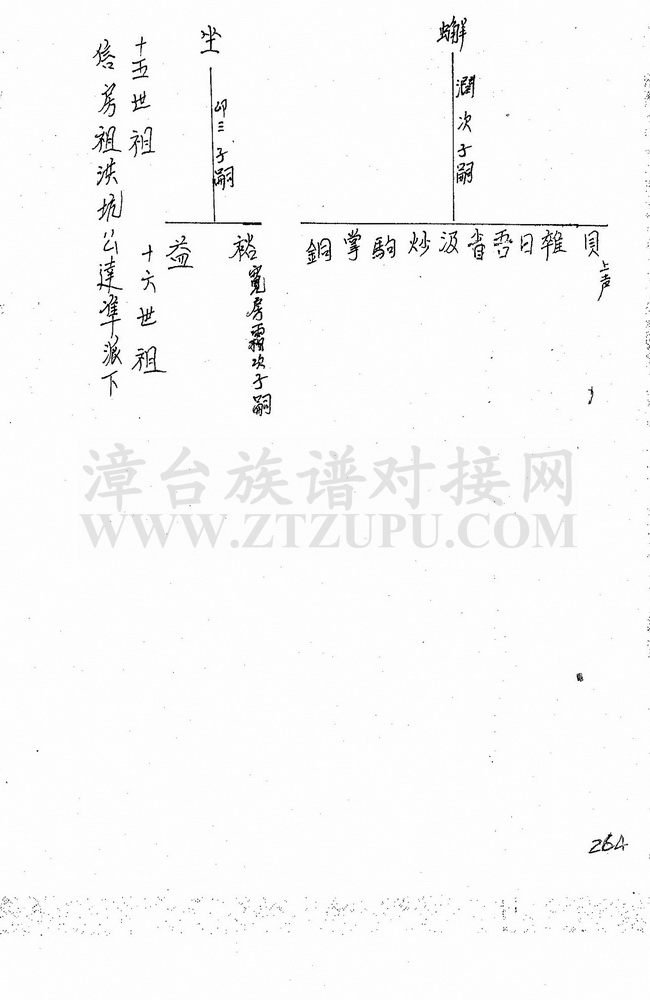 蠏
潤次子嗣
貝上声
雜
日
雪
省
汲
炒
駒
掌
銅
坐
卬三子嗣
裕寬房霜次子嗣
益
十五世祖
十六世祖
信房祖洪坑公達準派下
漳台族谱对接网
WWW.ZTZUPU.COM
264